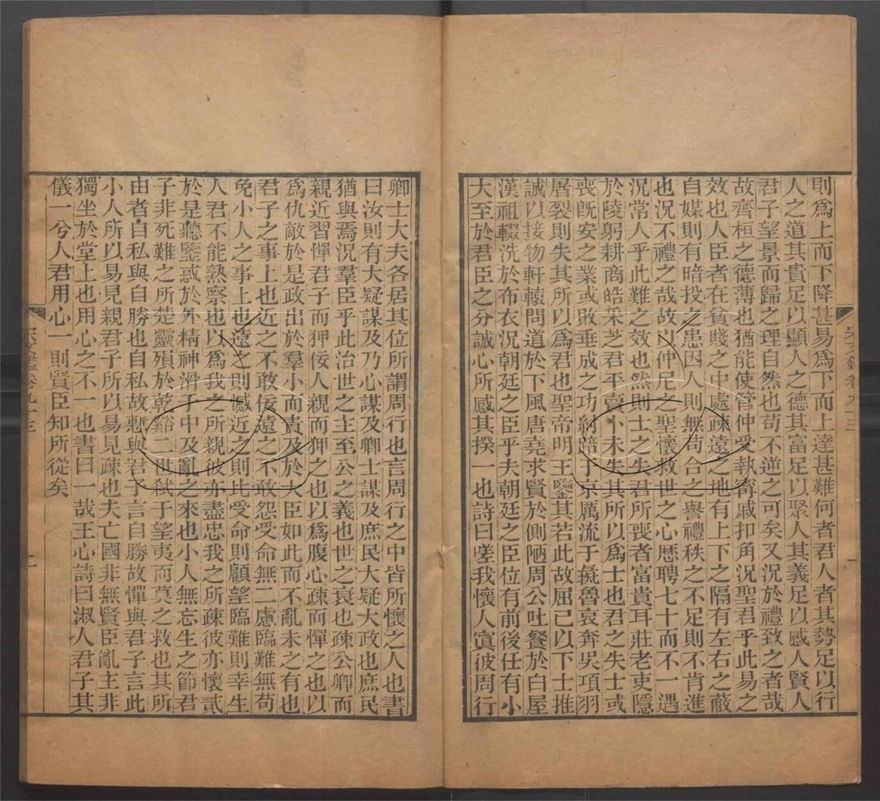 則爲上而下降甚易爲下而上達甚難何者君人者其勢足以行
人之道其貴足以顯人之德其富足以聚人其義足以感人賢人
君子望景而歸之理自然也苟不逆之可矣又況於禮致之者哉
故齊桓之德薄也猶能使管仲受執甯戚扣角況聖君乎此易之
效也人臣者在貧賤之中處疎遠之地有上下之隔有左右之蔽
自媒則有暗投之患因人則無苟合之譽禮秩之不足則不肯進
也況不禮之哉故以仲尼之聖懷救世之心歷聘七十而不一遇
況常人乎此難之效也然則士之失君所喪者富貴耳莊老吏隱
於陵躬耕商皓采芝君平賣卜未失其所以爲士也君之失士或
喪旣安之業或敗垂成之功紂踣于京厲流于彘魯哀奔吳項羽
屠裂則失其所以爲君也聖帝明王鑒其若此故屈己以下士推
誠以接物軒轅問道於下風唐堯求賢於側陋周公吐餐於白屋
漢祖輟洗於布衣況朝廷之臣乎夫朝廷之臣位有前後仕有小
大至於君臣之分誠心所感其揆一也詩曰嗟我懷人寘彼周行
卿士大夫各居其位所謂周行也言周行之中皆所懷之人也書
曰汝則有大疑謀及乃心謀及卿士謀及庶民大疑大政也庶民
猶與焉況羣臣乎此治世之主至公之義也世之衰也疎公卿而
親近習憚君子而狎佞人親而狎之也以爲腹心疎而憚之也以
爲仇敵於是政出於羣小而責及於大臣如此而不亂未之有也
君子之事上也近之不敢佞遠之不敢怨受命無二慮臨難無苟
免小人之事上也遠之則憾近之則比受命則顧望臨難則幸生
人君不能熟察也以爲我之所親彼亦盡忠我之所疎彼亦懷貳
於是聽鑒惑於外精神滑于中及亂之來也小人無忘生之節君
子非死難之所楚靈殞於乾谿二世弑于望夷而莫之救也其所
由者自私與自勝也自私故慙與君子言自勝故憚與君子言此
小人所以易見親君子所以易見疎也夫亡國非無賢臣亂主非
獨坐於堂上也用心之不一也書曰一哉王心詩曰淑人君子其
儀一兮人君用心一則賢臣知所從矣